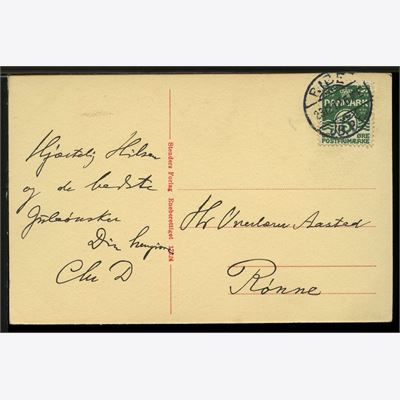 Hjertelig Hilsen
og de bedste
Juleønsker
Din hengivne
Chr D
Stenders Forlag Eneberettiget
RIBE
DANMARK
5
ØRE
POSTFRIMÆRKE
Hr Overlærer Aasted
Rønne